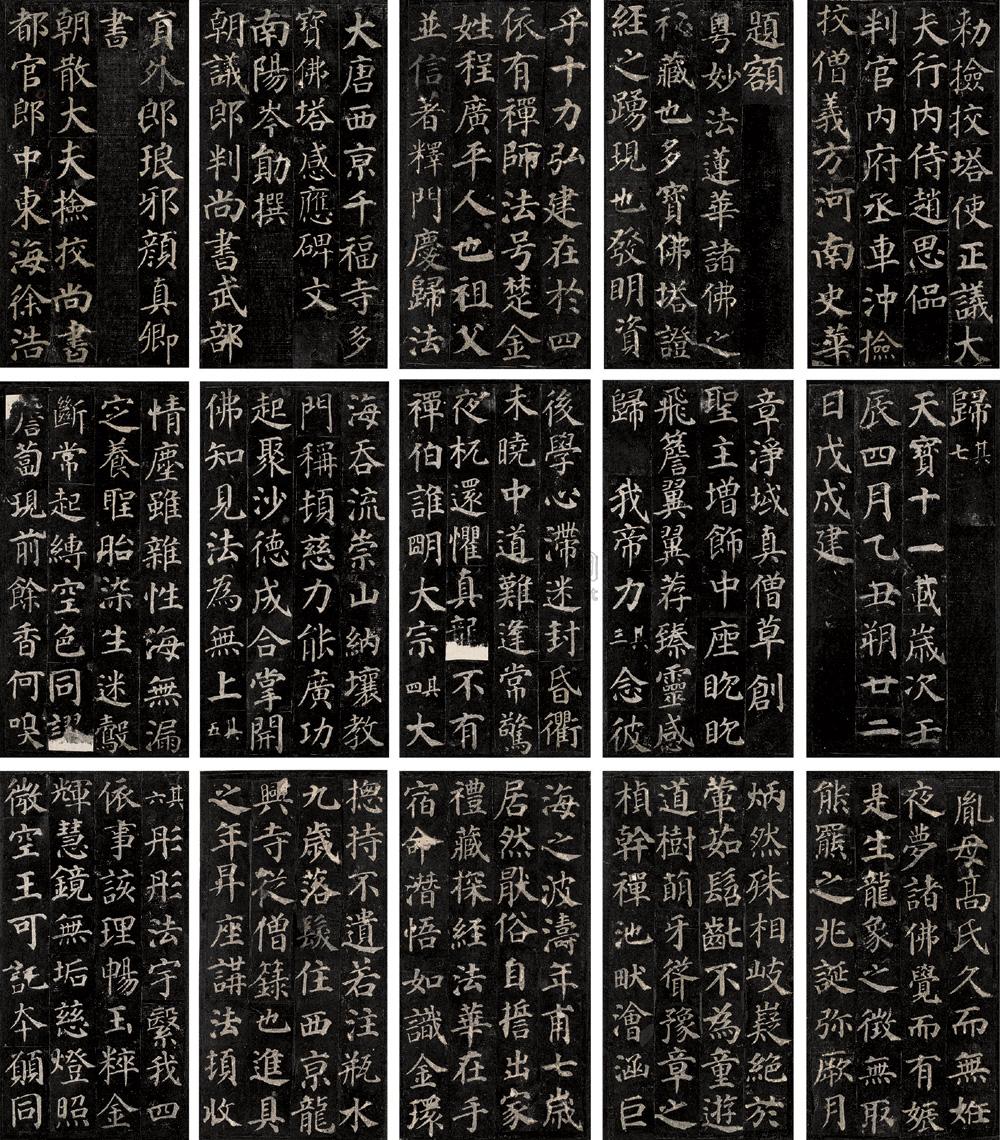 勑撿挍塔使正議大
夫行内侍趙思侃
判官内府丞車沖撿
挍僧義方河南史華
題額
粵妙法蓮華諸佛之
秘藏也多寶佛塔證
經之踴現也發明資
乎十力弘建在於四
依有禪師法号楚金
姓程廣平人也祖父
並信著釋門慶歸法
大唐西京千福寺多
寶佛塔感應碑文
南陽岑勛撰
朝議郎判尚書武部
員外郎琅邪顏真卿
書
朝散大夫撿挍尚書
都官郎中東海徐浩
歸其七
天寶十一載歲次壬
辰四月乙丑朔廿二
日戊戌建
章淨域真僧草創
聖主增飾中座眈眈
飛簷翼翼荐臻靈感
歸 我帝力其三念彼
後學心滯迷封昏衢
未曉中道難逢常驚
夜杌還懼真龍不有
禪伯誰明大宗其四大
海吞流崇山納壤教
門稱頓慈力能廣功
起聚沙德成合掌開
佛知見法為無上其五
情塵雖雜性海無漏
定養聖胎染生迷鷇
斷常起縛空色同謬
蒼蔔現前餘香何嗅
胤母高氏久而無姙
夜夢諸佛覺而有娠
是生龍象之徵無取
熊羆之兆誕弥厥月
炳然殊相岐嶷絕於
葷茹髫齔不為童遊
道樹萌牙聳豫章之
楨幹禪池畎澮涵巨
海之波濤年甫七歲
居然猒俗自誓出家
禮藏探經法華在手
宿命潛悟如識金環
揔持不遺若注瓶水
九歲落髮住西京龍
興寺從僧籙也進具
之年昇座講法頓收
其六彤彤法宇繄我四
依事該理暢玉粹金
輝慧鏡無垢慈燈照
微空王可託本願同